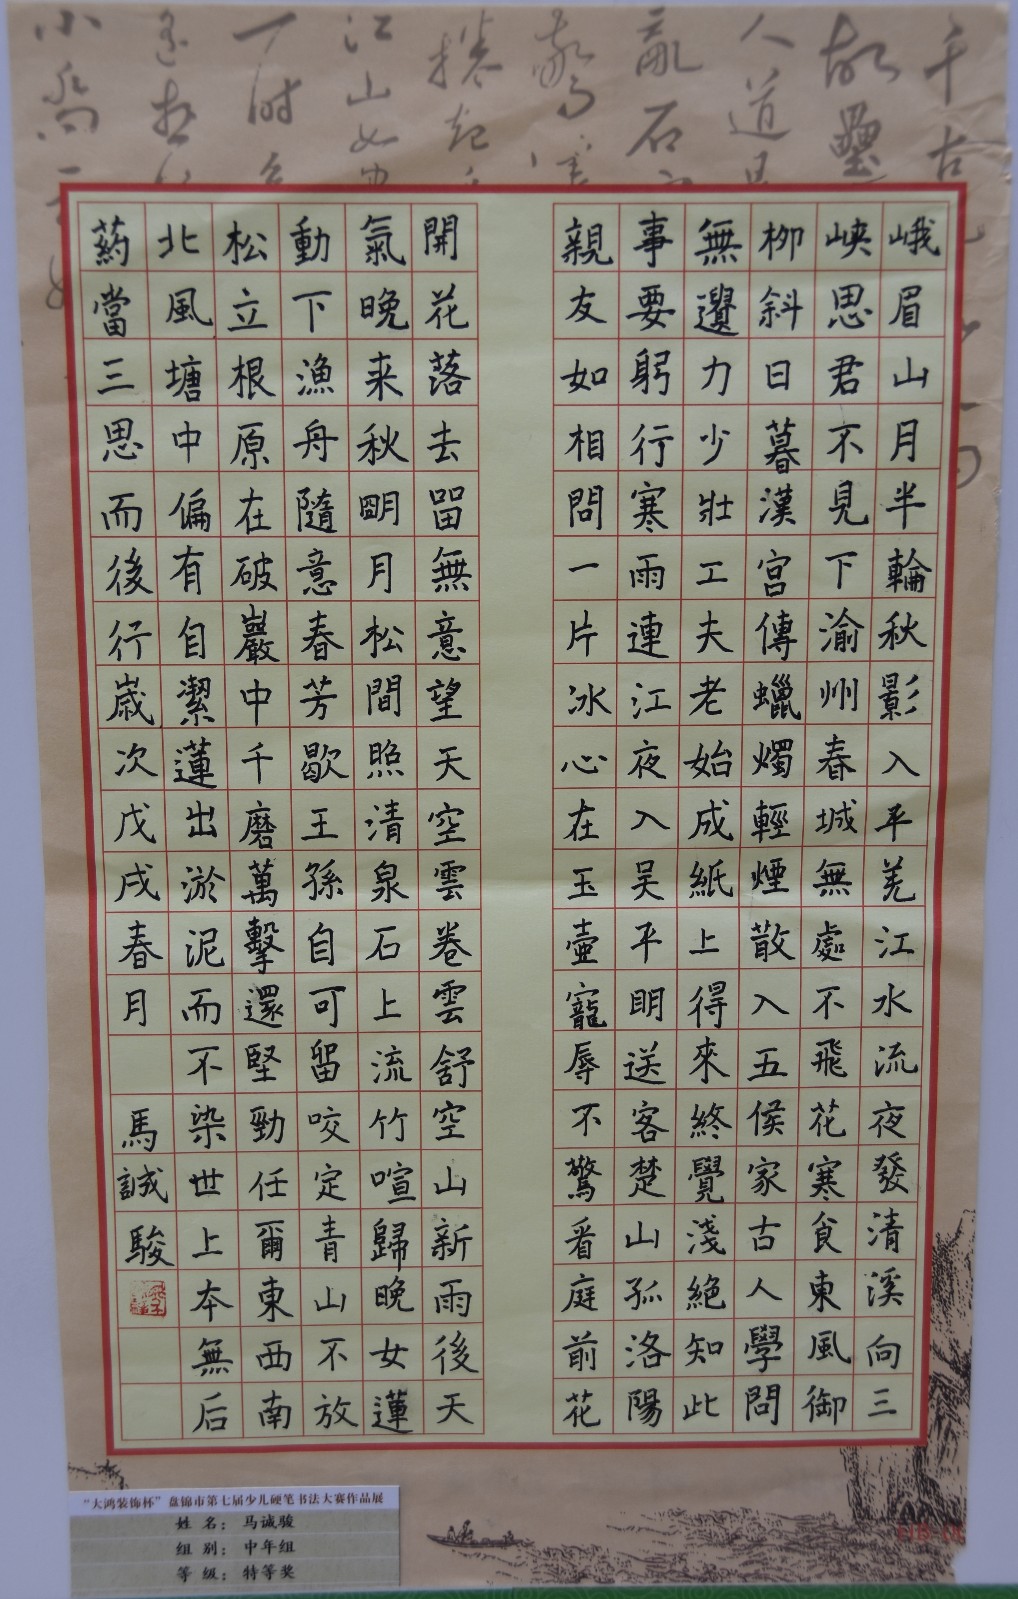 千古
故壘
人道是
亂石
江山如
一時
小喬
峨眉山月半輪秋影入平羌江水流夜發清溪向三
峽思君不見下渝州春城無處不飛花寒食東風御
柳斜日暮漢宮傳蠟燭輕煙散入五侯家古人學問
無遺力少壯工夫老始成紙上得來終覺淺絕知此
事要躬行寒雨連江夜入吴平明送客楚山孤洛陽
親友如相問一片冰心在玉壺寵辱不驚看庭前花
開花落去留無意望天空雲卷雲舒空山新雨後天
氣晚来秋明月松間照清泉石上流竹喧歸晚女蓮
動下漁舟隨意春芳歇王孫自可留咬定青山不放
松立根原在破巖中千磨萬擊還堅勁任爾東西南
北風塘中偏有自潔蓮出淤泥而不染世上本無后
葯當三思而後行歲次戊戌春月 馬誠駿
“大鸿装饰杯”盘锦市第七届少儿硬笔书法大赛作品展
姓 名：马诚骏
组 别：中年组
等 级：特等奖